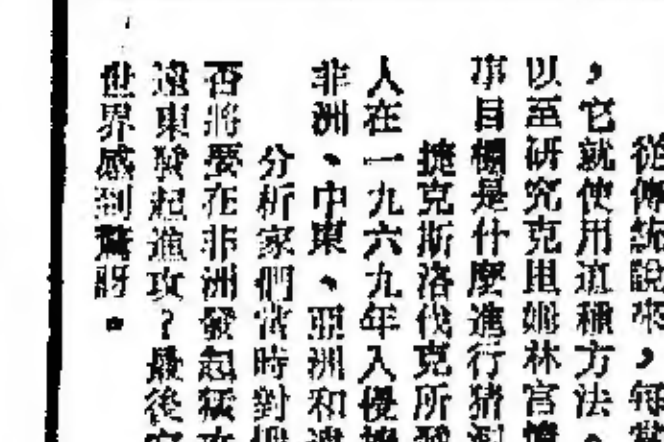 從傳統說來，每當
，它就使用這種方法，
以至研究克里姆林宮
事目標是什麼進行猜測
捷克斯洛伐克所發
人在一九六九年入侵
非洲、中東、亞洲和遠
分析家們當時對
否將要在非洲發起猛攻
遠東發起進攻？最後它
世界感到驚訝。